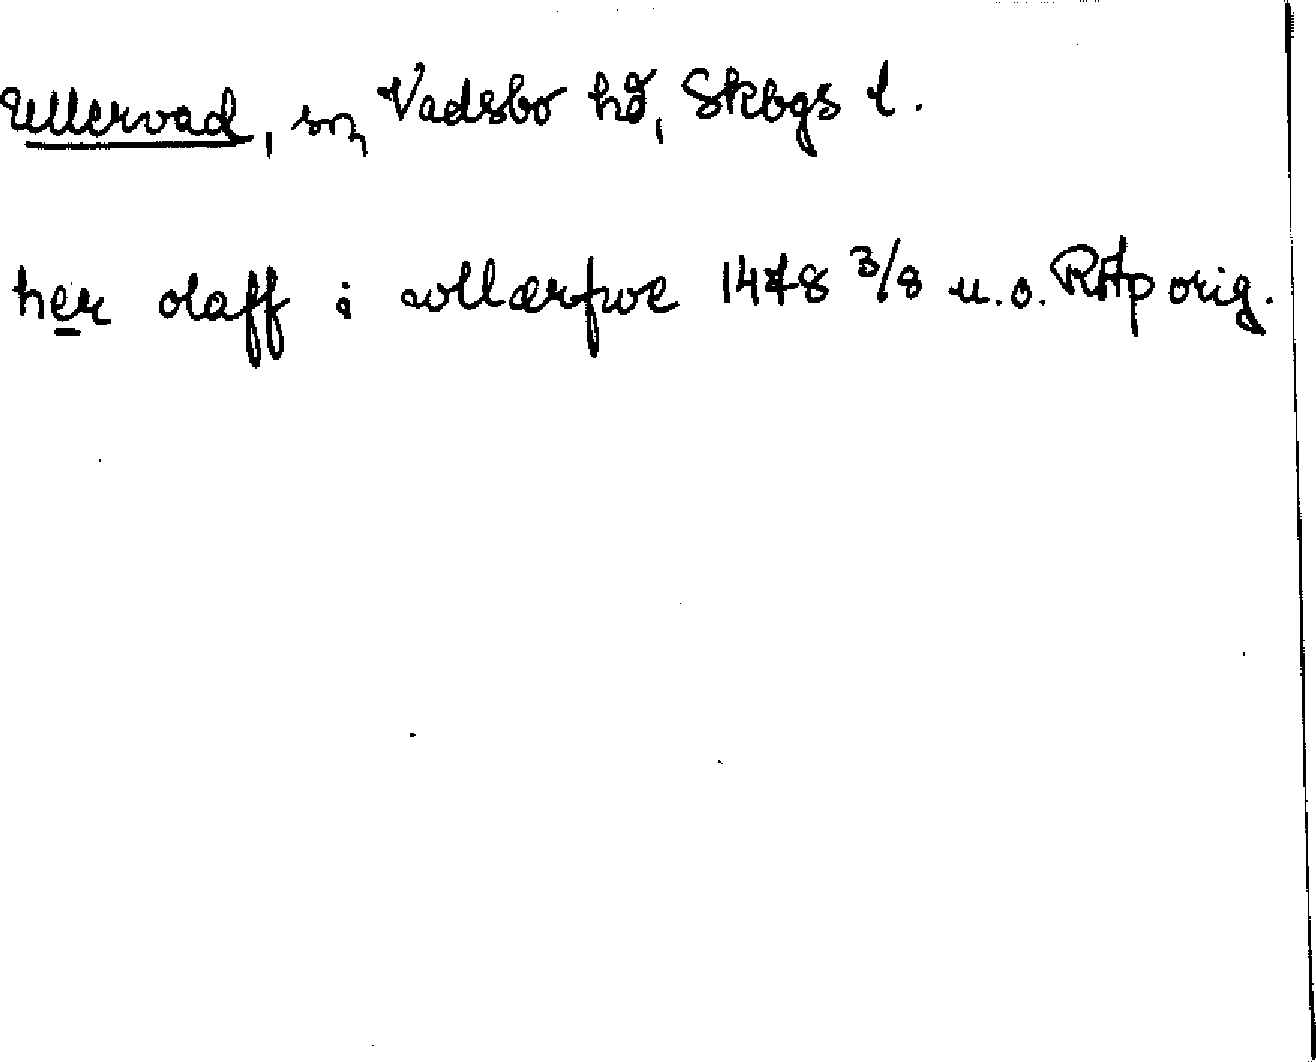 Ullervad, sn, Vadsbo hd, Skbgs l.
her olaff i wllærfwe 1478 3/8 u.o. RAp orig.